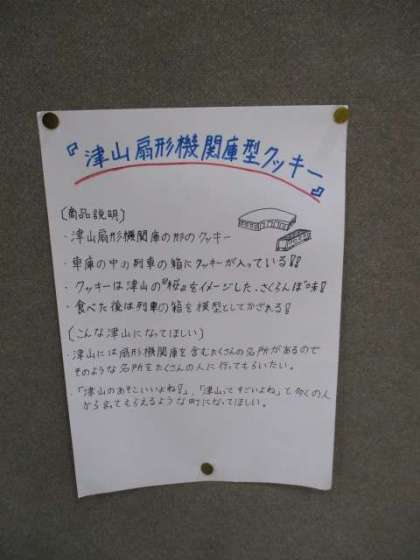 『津山扇形機関庫型クッキー』
〔商品説明〕
・津山扇形機関庫の形のクッキー
・車庫の中の列車の箱にクッキーが入っている!!
・クッキーは津山の『桜』をイメージした、さくらんぼ味!
・食べた後は列車の箱を模型としてかざれる!
〔こんな津山になってほしい〕
・津山には扇形機関庫を含むたくさんの名所があるので
そのような名所をたくさんの人に行ってもらいたい。
・「津山のあそこいいよね!」、「津山ってすごいよね」と多くの人
から言ってもらえるような町になってほしい。